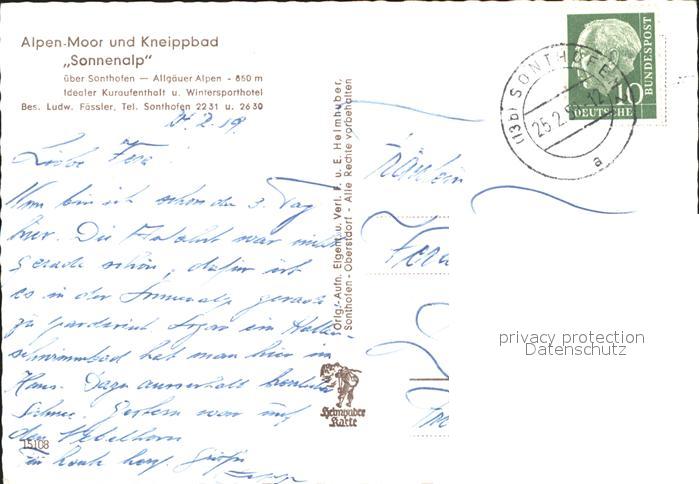 Alpen-Moor und Kneippbad
„Sonnenalp"
über Sonthofen — Allgäuer Alpen - 850 m
Idealer Kuraufenthalt u. Wintersporthotel
Bes. Ludw. Fässler, Tel. Sonthofen 2231 u. 2630
24.2.59
Liebe Vera!
Nun bin ich schon den 3. Tag
hier. Die Abfahrt war nicht
gerade schön, dafür ist
es in der Sonnenalp gerade
zu paradiesisch. Sogar ein Hallen-
schwimmbad hat man hier im
Haus. Dazu ausserhalb herrlicher
Schnee. Gestern war auf
dem Nebelhorn
Für heute herzl. Grüße
15108
Orig.-Aufn. Eigent. u. Verl. F. u. E. Heimhuber,
Sonthofen - Oberstdorf - Alle Rechte vorbehalten
Heimhuber
Karte
(13b) SONTHOFEN
25.2.59
a
10
DEUTSCHE
BUNDESPOST
Fräulein
Vera
privacy protection
Datenschutz